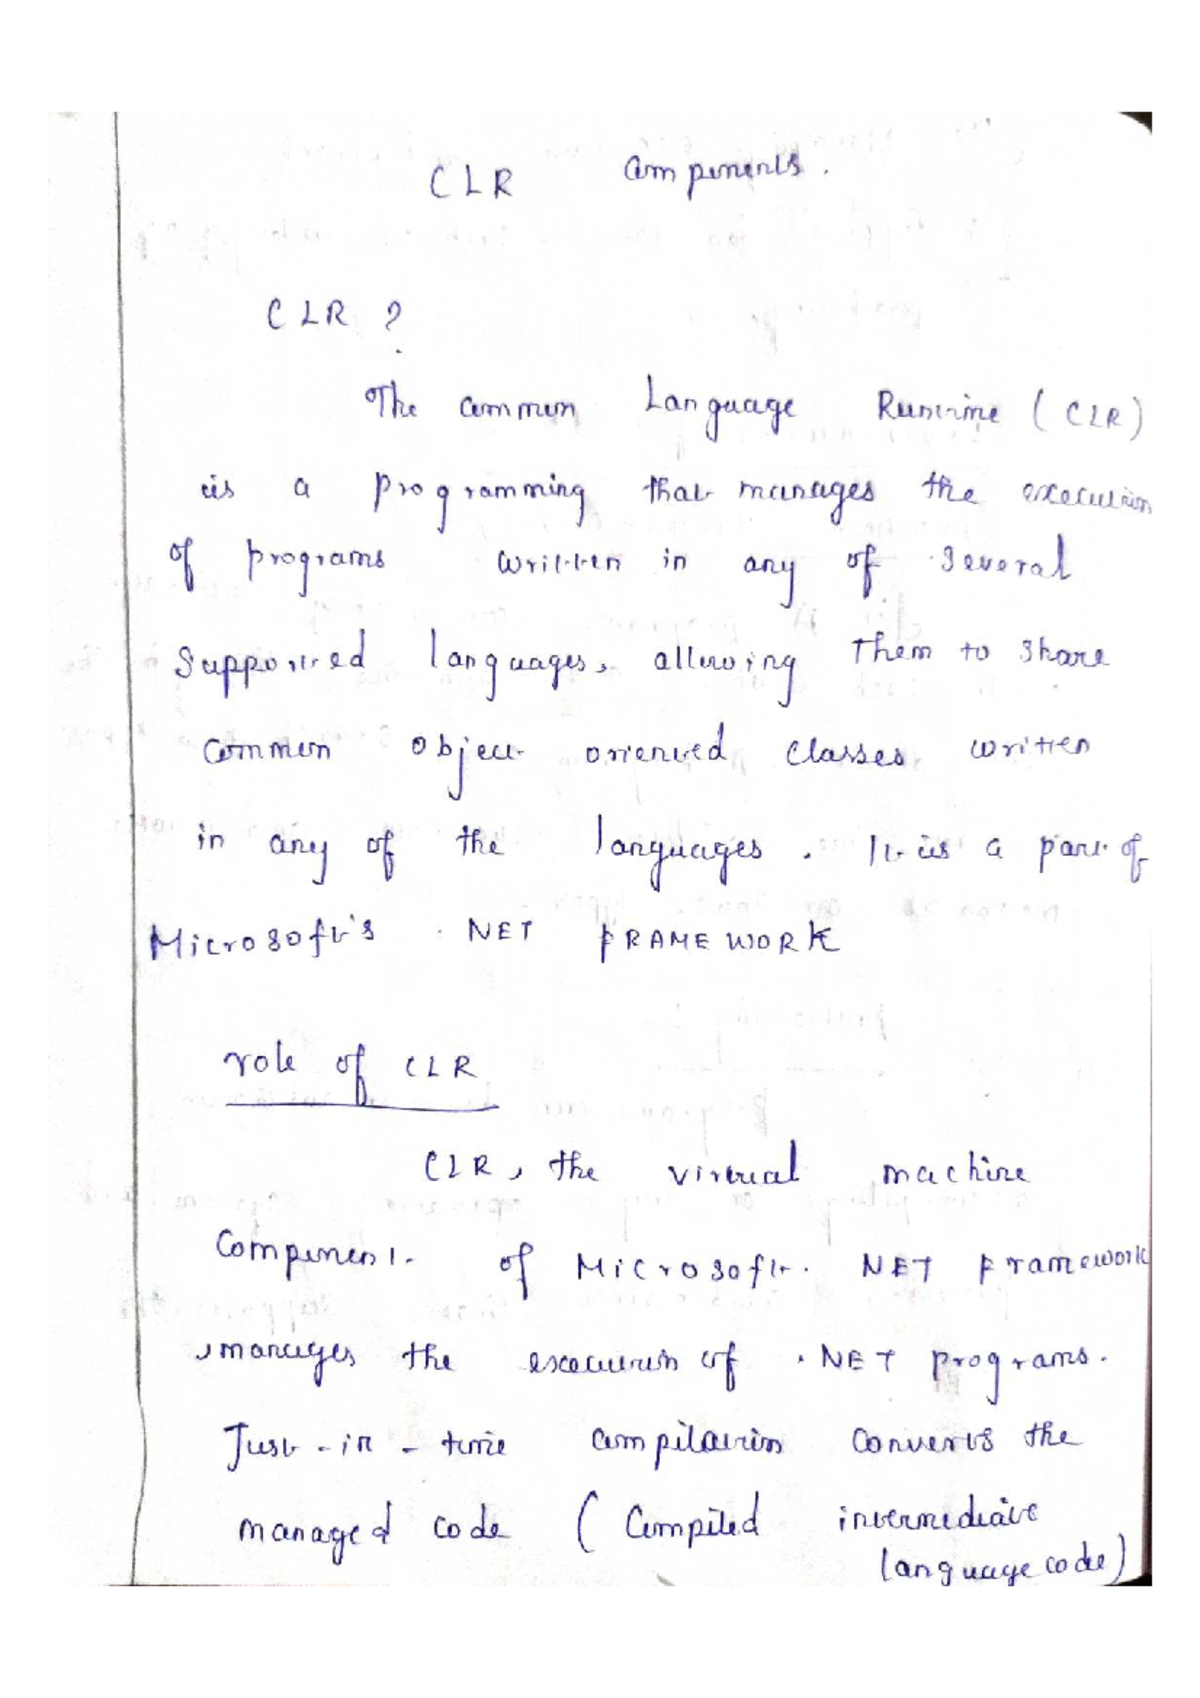 CLR Components.
CLR ?
The common Language Runtime (CLR)
is a programming that manages the execution
of programs written in any of several
Supported languages, allowing Them to share
common object oriented classes written
in any of the languages. It is a part of
Microsoft's .NET FRAMEWORK
role of CLR
CLR, the virtual machine
Component of Microsoft. NET Framework
, manages the execution of .NET programs.
Just-in-time compilation converts the
managed code (Compiled intermediate
language code)